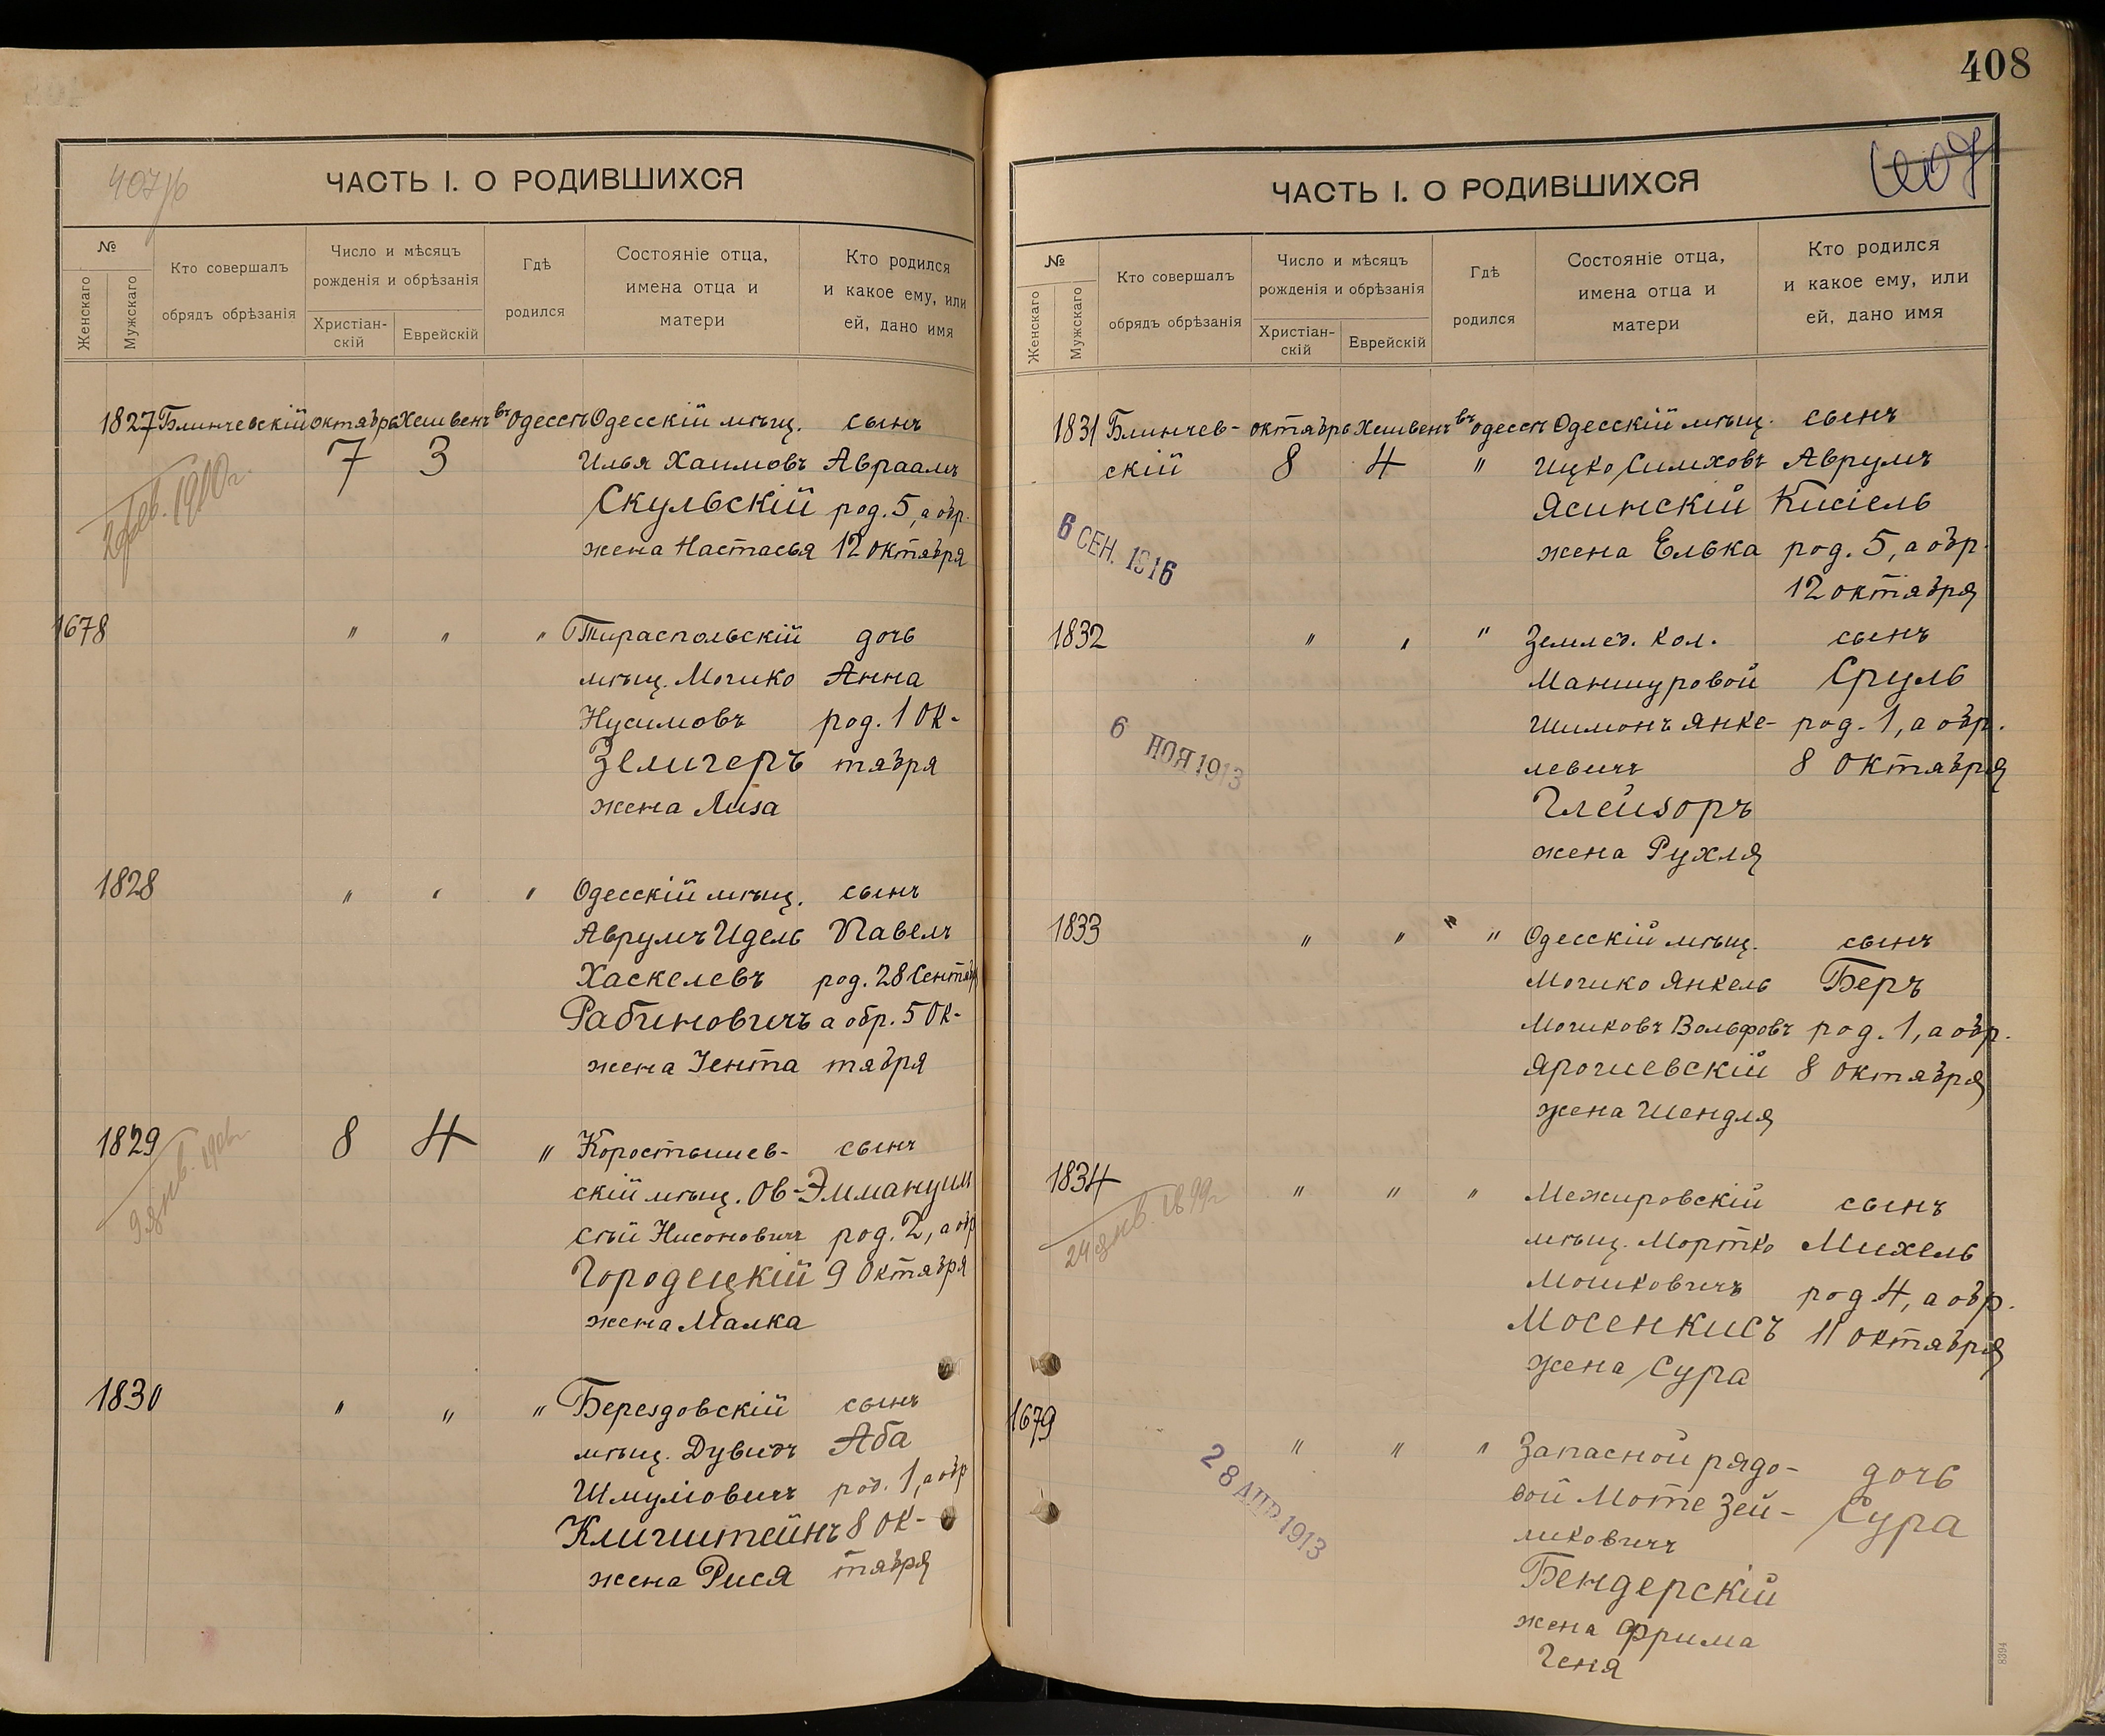 407/б
ЧАСТЬ I. О РОДИВШИХСЯ
№
Женскаго
Мужскаго
Кто совершалъ
обрядъ обрѣзанія
Число и мѣсяцъ
рожденія и обрѣзанія
Христіан-
скій
Еврейскій
Гдѣ
родился
Состояніе отца,
имена отца и
матери
Кто родился
и какое ему, или
ей, дано имя
1827 Блинчевскій октябрь Хешвенъ въ Одессѣ Одесскій мѣщ. сынъ
7 3 Илья Хаимовъ Авраамъ
Скульскій род. 5, а обр.
жена Настасья 12 октября
1678 " " " Тираспольскій дочь
мѣщ. Мошко Анна
Нусимовъ род. 1 Ок-
Зелигеръ тября
жена Лиза
1828 " " " Одесскій мѣщ. сынъ
Аврумъ Идель Павелъ
Хаскелевъ род. 28 Сентяб
Рабиновичъ а обр. 5 Ок-
жена Іента тября
1829 8 4 " Коростышев- сынъ
скій мѣщ. Ов- Эммануил
сѣй Нисоновичъ род. 2, а обр
Городецкій 9 Октября
жена Малка
1830 " " " Берездовскій сынъ
мѣщ. Дувидъ Аба
Шмуліовичъ род. 1, а обр
Клигштейнъ 8 Ок-
жена Рися тября
408
ЧАСТЬ I. О РОДИВШИХСЯ
№
Женскаго
Мужскаго
Кто совершалъ
обрядъ обрѣзанія
Число и мѣсяцъ
рожденія и обрѣзанія
Христіан-
скій
Еврейскій
Гдѣ
родился
Состояніе отца,
имена отца и
матери
Кто родился
и какое ему, или
ей, дано имя
1831 Блинчев- октябрь Хешвенъ въ Одессѣ Одесскій мѣщ. сынъ
скій 8 4 " Ицко Симховъ Аврумъ
Ясинскій Кисіель
жена Елька род. 5, а обр.
6 СЕН. 1916
12 октября
1832 " " " Землед. кол. сынъ
Маншуровой Сруль
Шимонъ Янке- род. 1, а обр.
6 НОЯ 1913
левичъ 8 Октября
Глейзоръ
жена Рухля
1833 " " " Одесскій мѣщ. сынъ
Мошко Янкель Беръ
Мошковъ Вольфовъ род. 1, а обр.
Ярошевскій 8 Октября
жена Шендля
1834 " " " Межировскій сынъ
24 янв. 1899 г
мѣщ. Мортко Михель
Мошковичъ род 4, а обр.
Мосенкисъ 11 октября
жена Сура
1679 " " " Запасной рядо- дочь
28 АПР 1913
вой Моте Зей- Сура
ликовичъ
Бендерскій
жена Фрима
Геня
8394